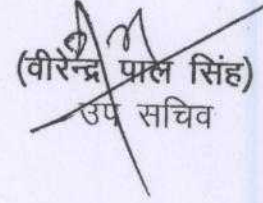 (वीरेन्द्र पाल सिंह)
उप सचिव